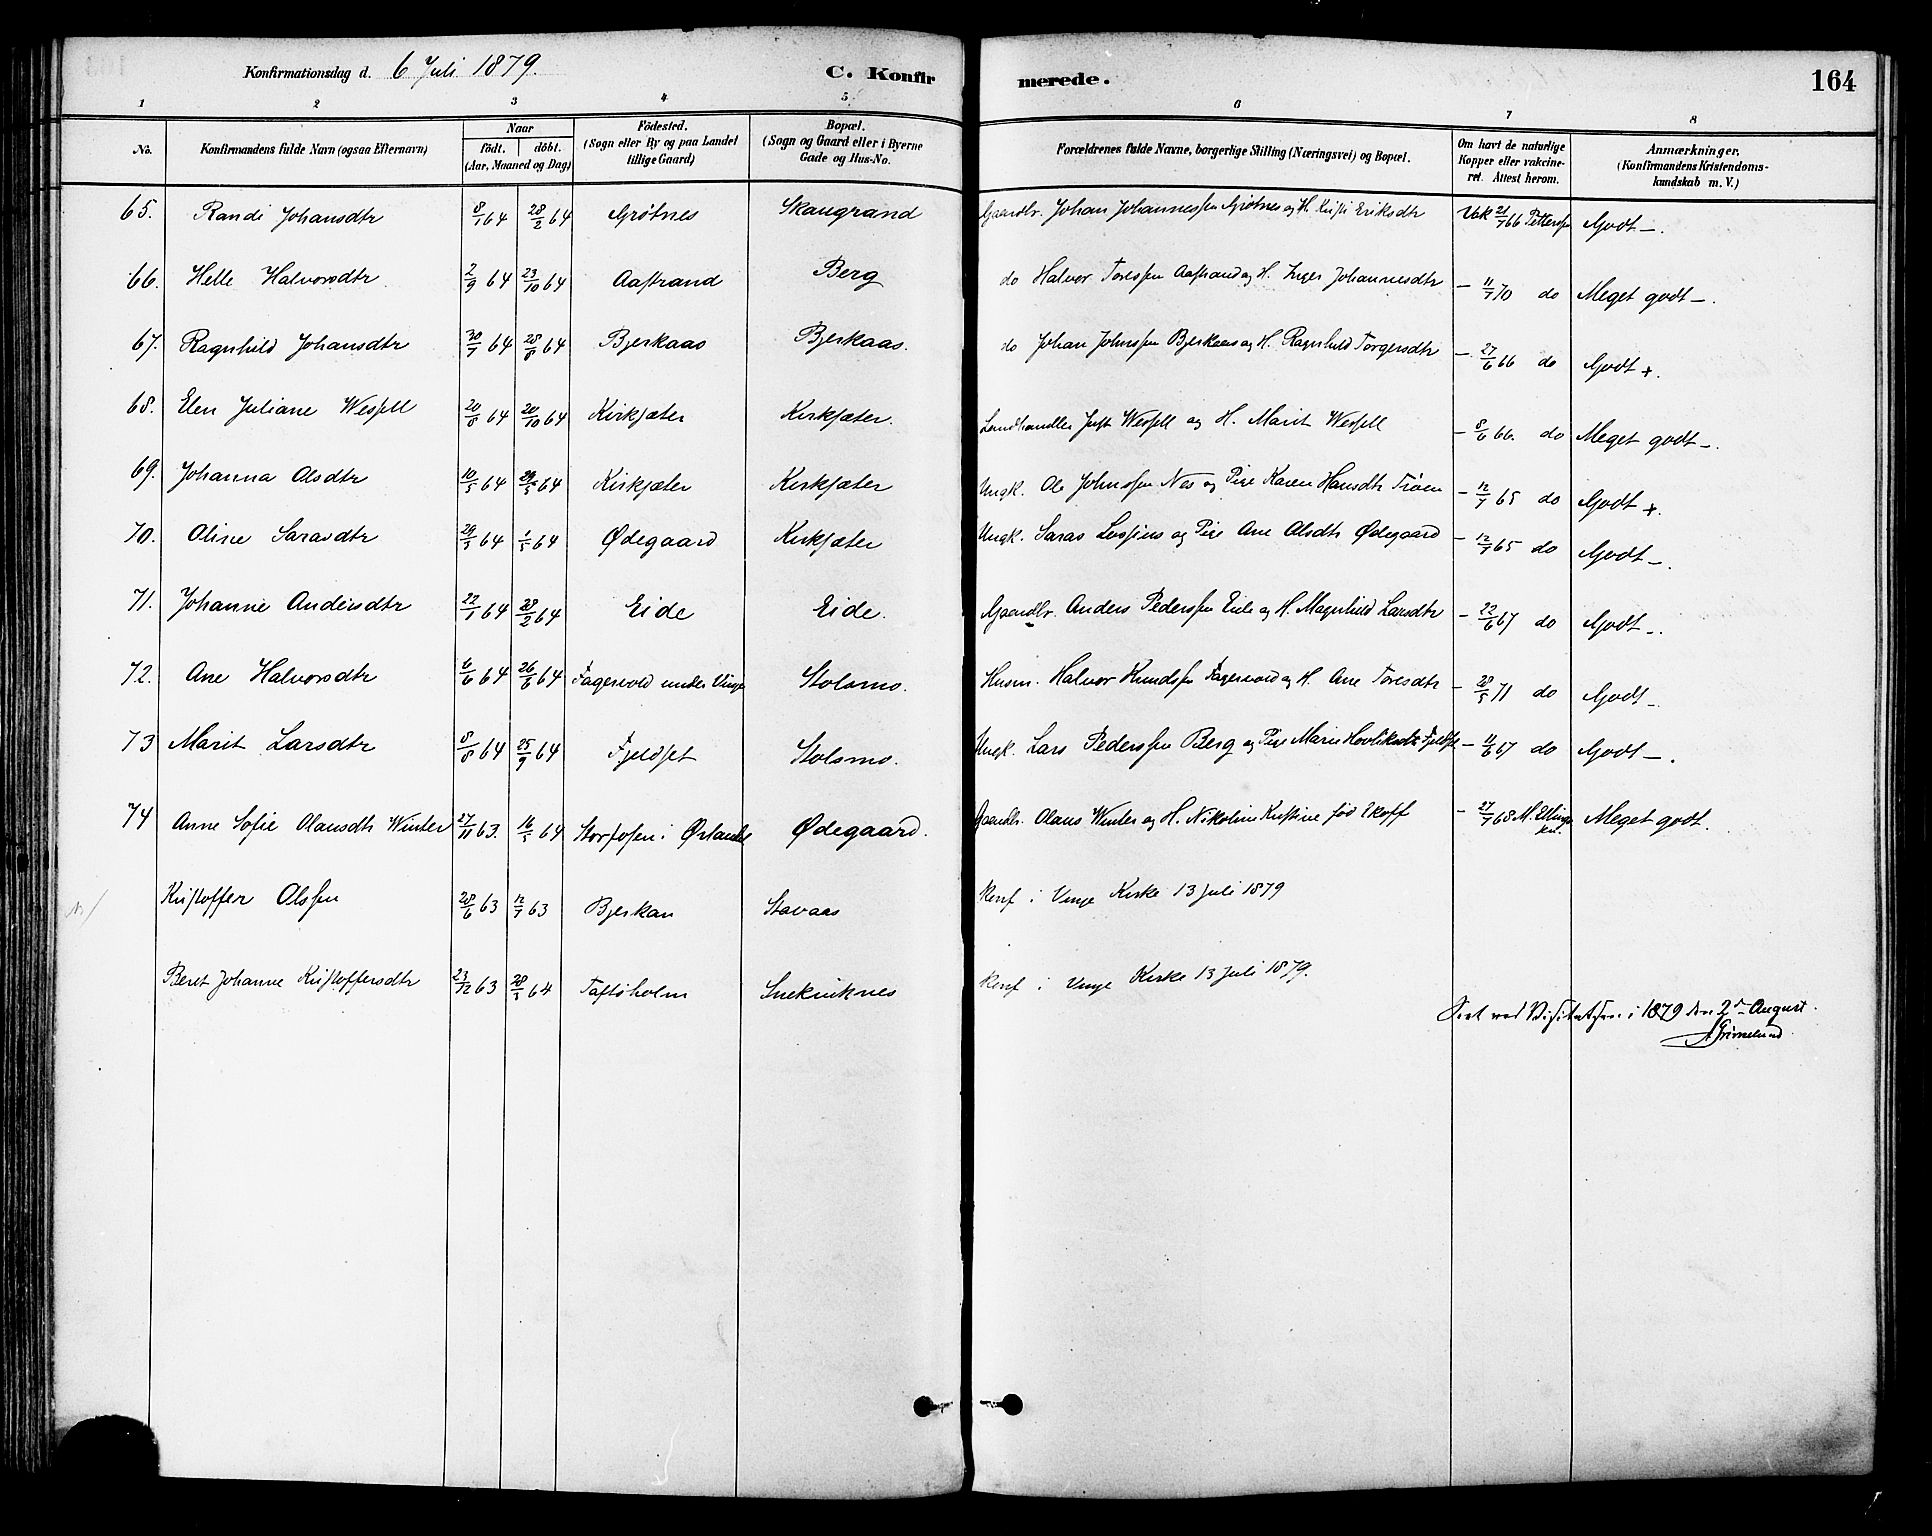 Konfirmationsdag d. 6 Juli 1879. C. Konfirmerede. 164
1 2 3 4 5 6 7 8
No. Konfirmandens fulde Navn (ogsaa Efternavn) Naar födt. döbt. (Aar, Maaned og Dag) Födested. (Sogn eller By og paa Landet tillige Gaard) Bopæl. (Sogn og Gaard eller i Byerne Gade og Hus-No. Forældrenes fulde Navne, borgerlige Stilling (Næringsvei) og Bopæl. Om havt de naturlige Kopper eller vakcineret. Attest herom. Anmærkninger. (Konfirmandens Kristendomskundskab m. V.)
65. Randi Johansdtr 8/1 64 28/2 64 Grötnes Skaugrand Gaardbr. Johan Johannessen Grötnes og H. Kristi Eriksdtr Vak 21/7 66 Pettersen Godt -.
66. Helle Halvorsdtr 2/9 64 23/10 64 Aastrand Berg do Halvor Toressen Aastrand og H. Inger Johannesdtr - 11/7 70 do Meget godt -.
67. Ragnhild Johansdtr 30/7 64 28/8 64 Bjerkaas Bjerkaas. do Johan Johnssen Bjerkaas og H. Ragnhild Torgersdtr - 27/6 66 do Godt +.
68. Elen Juliane Wessell 20/8 64 20/10 64 Kirksæter Kirksæter. Landhandler Just Wessell og H. Marit Wessell - 8/6 66. do Meget godt -.
69. Johanna Olsdtr 10/5 64 29/5 64 Kirksæter Kirksæter Ungk. Ole Johnssen Nes og Pige Karen Hansdtr Tröen - 12/7 65 do Godt +.
70. Oline Sarasdtr 29/3 64 1/5 64 Ødegaard Kirksæter Ungk. Saras og Pige Ane Olsdtr Ødegaard - 12/7 65 do Godt -.
71. Johanne Andersdtr 22/1 64 28/2 64 Eide Eide. Gaardbr. Anders Pederssen Eide og H. Magnhild Larsdtr - 22/6 67 do Godt -.
72. Ane Halvorsdtr 6/6 64 26/6 64 Fagervold under Vinge Stolsmo. Husm. Halvor Knudssen Fagervold og H. Ane Toresdtr - 28/5 71 do Godt -
73 Marit Larsdtr 8/8 64 25/9 64 Fjeldset Stolsmo. Ungk. Lars Pederssen Berg og Pige Marit Fjeldset - 11/6 67 do Godt -.
74 Anne Sofie Olausdtr Winter 27/11 63. 16/5 64 Storfosen i Ørlandet Ødegaard. Gaardbr. Olaus Winter og H. Nikoline Kristine fød Ekoff - 27/7 68 M. Meget godt.
Kristoffer Olssen 28/6 63 12/7 63 Bjerkan Stavaas Konf i Vinje Kirke 13 Juli 1879
Beret Johanne Kristoffersdtr 23/12 63 28/3 64 Taftöholm Snekviknes Konf i Vinje Kirke 13 Juli 1879.
Seet ved Visitatsen i 1879 den 2den August.
A Grimelund